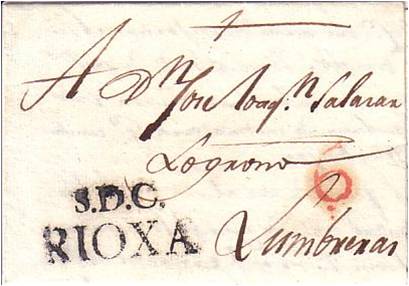 A Dn Jose Joaqn Salazar
Logroño
6
S.D.C.
RIOXA
Lumbreras